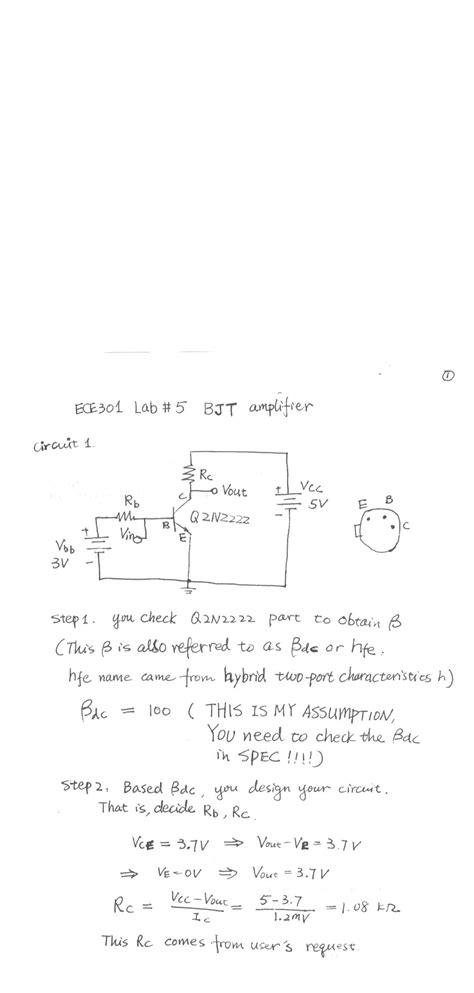 ①
ECE301 Lab #5 BJT amplifier
Circuit 1.
Rc
C
Vout
Vcc
5V
+
-
Rb
Vin
B
Q2N2222
E
Vbb
3V
+
-
E
B
C
Step 1. you check Q2N2222 part to obtain β
(This β is also referred to as βdc or hfe.
hfe name came from hybrid two-port characteristics h)
βdc = 100 ( THIS IS MY ASSUMPTION,
YOU need to check the βdc
in SPEC !!!!)
Step 2. Based βdc, you design your circuit.
That is, decide Rb, Rc.
VCE = 3.7V ⇒ Vout-VE = 3.7V
⇒ VE=0V ⇒ Vout = 3.7V
Rc = Vcc-Vout / Ic = 5-3.7 / 1.2mV = 1.08 kΩ
This Rc comes from user's request.